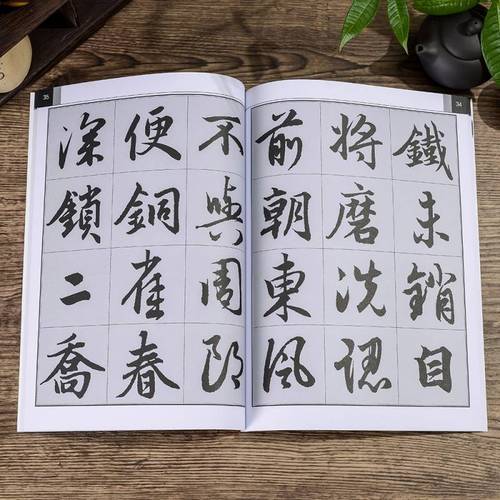 34
鐵未銷自
將磨洗認
前朝東風
不與周郎
便銅雀春
深鎖二喬
35